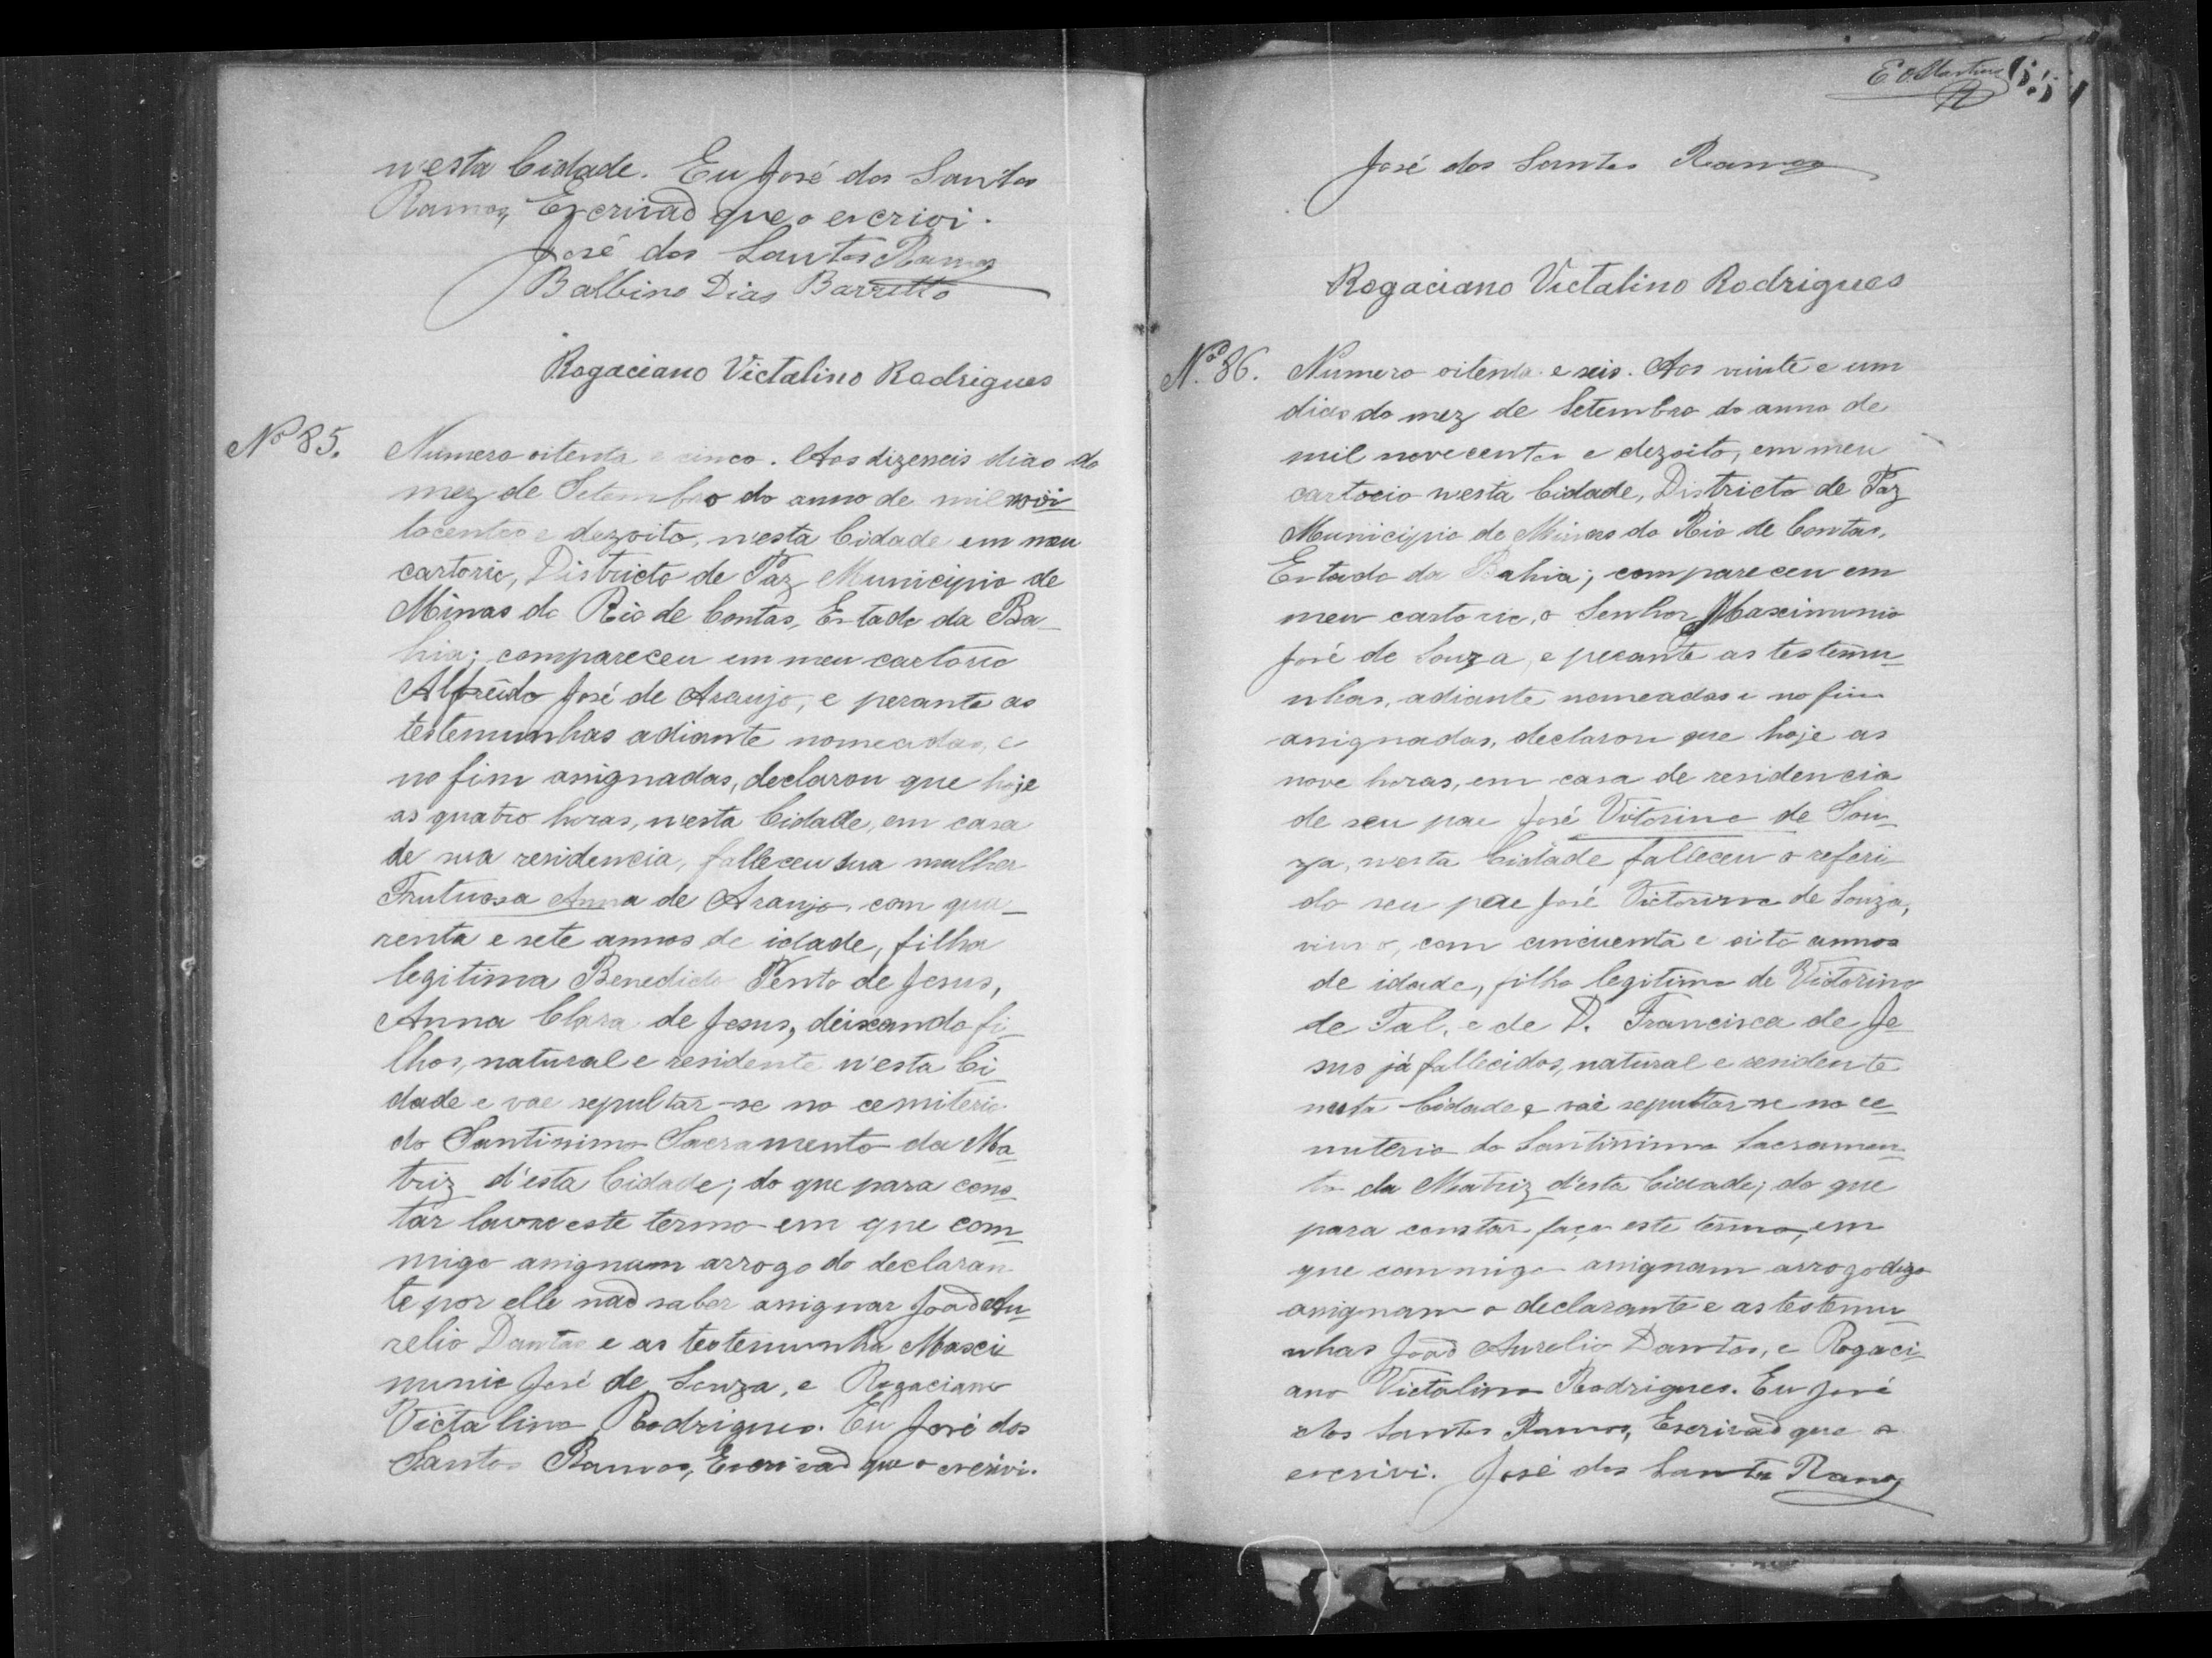 n'esta Cidade. Eu José dos Santos
Ramos, Escrivaõ que o escrivi.
José dos Santos Ramos
Balbino Dias Barretto
Rogaciano Victalino Rodrigues
Nº 85. Numero oitenta e cinco. Aos dizeseis dias do
mez de Setembro do anno de mil
e dezoito, n'esta Cidade em meu
cartorio, Districto de Paz Municipio de
Minas do Rio de Contas, Estado da Ba_
hia; compareceu em meu cartorio
Alfreido José de Araujo, e perante as
testemunhas adiante nomeadas, e
no fim assignadas, declarou que hoje
as quatro horas, n'esta Cidade, em casa
de sua residencia, falleceu sua mulher
Frutuosa Anna de Araujo, com qua_
renta e sete annos de idade, filha
legitima Benedicto de Jesus,
Anna Clara de Jesus, deixando fi_
lhos, natural e residente n'esta Ci_
dade e vae sepultar-se no cemiterio
do Santissimo Sacramento da Ma_
triz d'esta Cidade; do que para cons_
tar lavrei este termo em que com_
migo assignam arrogo do declaran
te por elle naõ saber assignar Joaõ Au_
relio Dantas e as testemunha Maxi
munio José de Souza, e Rogaciano
Victalino Rodrigues. Eu José dos
Santos Ramos, Escrivaõ que o escrivi.
José dos Santos Ramos
Rogaciano Victalino Rodrigues
Nº 86. Numero oitenta e seis. Aos vinte e um
dias do mez de Setembro do anno de
mil novecentos e dezoito, em meu
cartocio n'esta Cidade, Districto de Paz
Municipio de Minas do Rio de Contas,
Estado da Bahia; compareceu em
meu cartorio, o Senhor Maximunio
José de Souza, e perante as testemu_
nhas, adiante nomeadas e no fim
assignadas, declarou que hoje as
nove horas, em casa de residencia
de seu pae José Vitorino de Sou_
za, n'esta Cidade falleceu o referi_
do seu pae José Victorino de Souza,
viuvo, com cincuenta e oito annos
de idade, filho legitimo de Victorino
de Tal, e de D. Francisca de Je_
sus já fallecidos, natural e residente
nesta Cidade e vai sepultar-se no ce_
miterio do Santissimo Sacramen_
to da Matriz d'esta Cidade; do que
para constar faço este termo, em
que commigo assignam arrogo digo
assignam o declarante e as testemu_
nhas Joaõ Aurelio Dantas, e Rogaci_
ano Victalino Rodrigues. Eu José
dos Santos Ramos, Escrivaõ que o
escrivi. José dos Santos Ramos